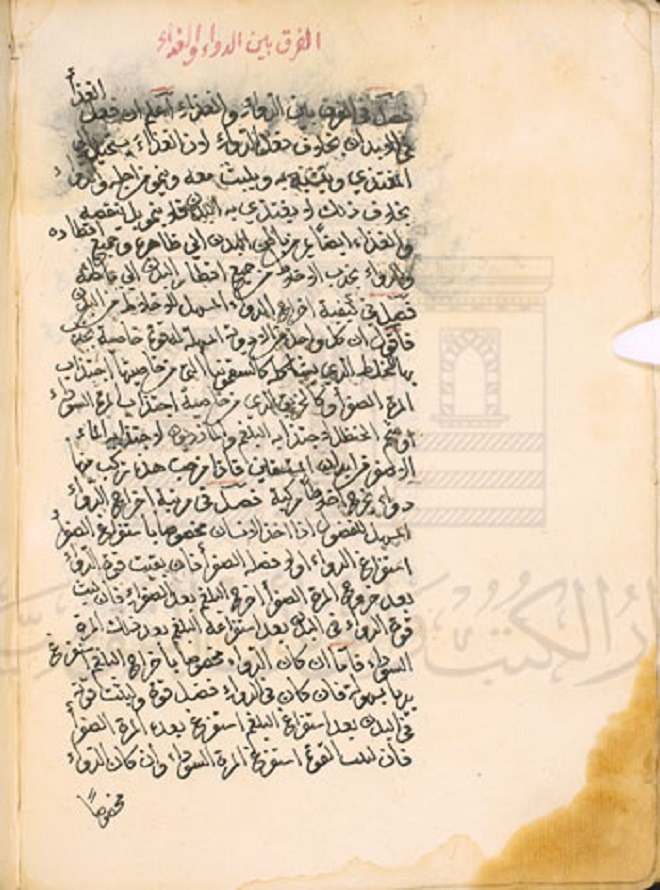 الفرق بين الدواء والغذاء
فصل في الفرق بين الدواء والغذاء اعلم ان فعل الغذا
في الابدان بخلاف فعل الدواء لان الغذاء يستحيل الى
المغتذي ويتشبه به ويلبث معه وينمو من اجله والدواء
بخلاف ذلك لا يغتذي به البدن فلا ينمو بل ينقصه
والغذاء ايضا من باطن البدن الى ظاهره وجميع اقطاره
والدواء يجذب الاخلاط من جميع اقطار البدن الى
فصل في كيفية اخراج الدواء المسهل للاخلاط من البدن
فاقول ان كل واحد من الادوية المسهلة لقوة خاصية يجذب
بها الخلط الذي كالسقمونيا التي من خاصيتها اجتذاب
المرة الصفرا وكالخربق الذي من خاصية اجتذاب المرة السوداء
الحنظل لاجتذابه البلغم لاجتذابه الماء
الاصفر من ابدان المستسقين فاذا هذه تركب منها
دواء يخرج اخلاطا مركبة فصل في مرتبة اخراج الدواء
المسهل للفضول اذا اخذ الانسان مخصوصا باستفراغ الصفرا
استفرغ الدواء اولا فضلة الصفرا فان بقيت قوة الدواء
بعد خروج المرة الصفرا اخرج البلغم بعد الصفراء فان بقيت
قوة الدواء في البدن بعد استفراغه البلغم بعد ذلك المرة
السوداء فاما ان كان الدواء مخصوصا باخراج البلغم استفرغ
بسهولة فان كان في الدواء فضل قوة وبقيت قوته
في البدن بعد استفراغ البلغم استفرغ بعده المرة الصفرا
فان القوة استفرغ المرة السوداء وان كان الدواء
مخصوصا